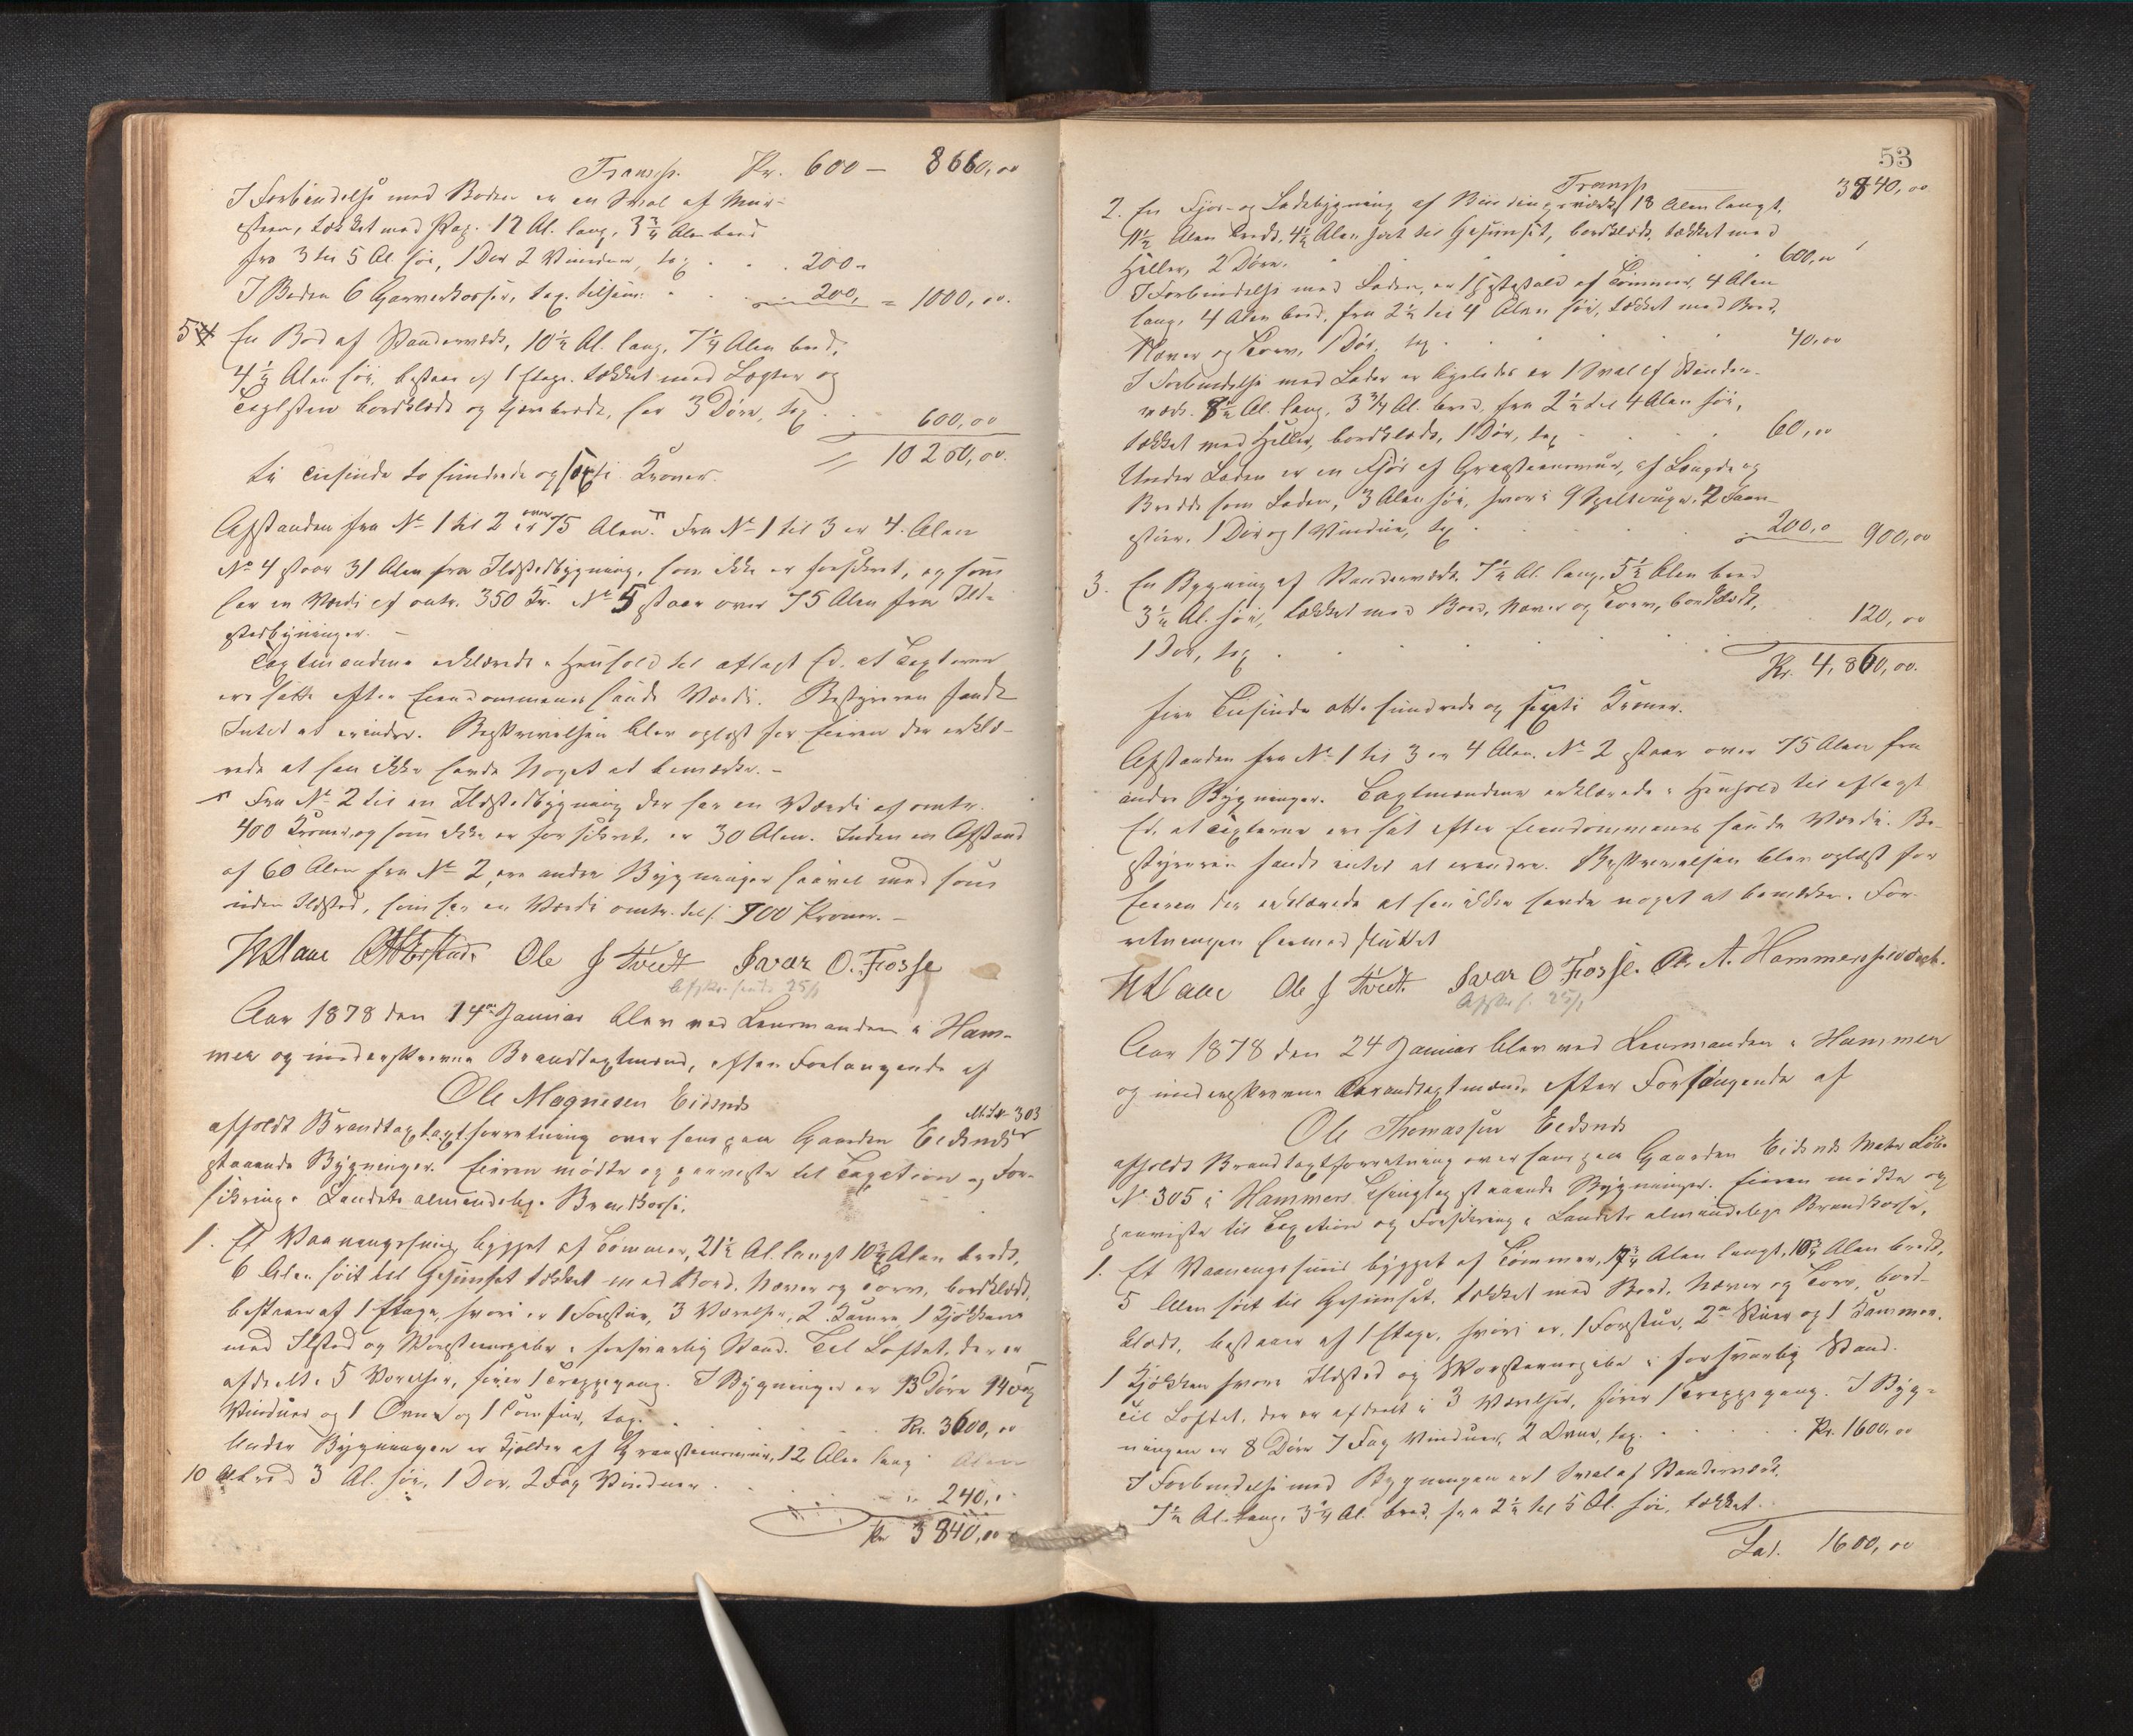 Transp. Kr. 600 — 8660,00
I Forbindelse med Boden er en Sval af Mur-
steen, tækket med Pap. 12 Al. lang, 3 3/4 Alen bred
fra 3 til 5 Al. høi, 1 Dør 2 Vinduer, tax. . . 200 "
I Boden 6 Garverkasser, tax. tilsam. . . 200, = 1000,00.
5 En Bod af Standerværk, 10 1/2 Al. lang, 7 1/4 Alen bred,
4 1/2 Alen høi, bestaar af 1 Etage. tækket med Lægter og
Taglsteen bordklædt og tjærebredt, har 3 Døre, tax . . 600,00
10260,00.
ti Tusinde to hundrede og sexti Kroner.
Afstanden fra No 1 til 2 er over 75 Alen. Fra No 1 til 3 er 4 Alen
No 4 staar 31 Alen fra Ildstedbygning, som ikke er forsikret, og som
har en Værdi af omtr. 350 Kr. No 5 staar over 75 Alen fra Ild-
stedbygninger. —
Taxtmændene erklærede i Henhold til aflagt Ed, at Taxterne
ere satte efter Eiendommenes sande Værdi. Bestyreren fandt
Intet at erindre. Beskrivelsen blev oplæst for Eieren der erklæ-
rede at han ikke havde Noget at bemærke. —
Fra No 2 til en Ildstedbygning der har en Værdi af omtr.
400 Kroner, og som ikke er forsikret, er 30 Alen. Inden en Afstand
af 60 Alen fra No 2, ere andre Bygninger saavel med som
uden Ildsted, som har en Værdi omtr. tils. 900 Kroner. —
Ole J Tvedt Ivar O. Fosse
Afskr. sendt 25/1
Aar 1878 den 14de Januar blev ved Lensmanden i Ham-
mer og underskrevne Brandtaxtmænd, efter Forlangende af
Ole Magnesen Eidsnes
M. L. No 303
afholdt Brandtaxtforretning over hans paa Gaarden Eidsnes
staaende Bygninger. Eieren mødte og paaviste til Taxation og For-
sikring i Landets almindelige Brandkasse.
1. Et Vaaningshuus bygget af Tømmer, 21 1/2 Al. langt 10 3/4 Alen bredt,
6 Alen høit til Gesimset tækket med Bord, Næver og Torv, bordklædt,
bestaaer af 1 Etage, hvori er 1 Forstue, 3 Værelser, 2 Kamre, 1 Kjøkken
med Ildsted og Skorsteenspibe i forsvarlig Stand. Til Loftet, der er
afdeelt i 5 Værelser, fører 1 Trappegang. I Bygningen er 13 Døre 14 Fag
Vinduer og 1 Ovn og 1 Comfur, tax. . . Kr. 3600,00
Under Bygningen er Kjælder af Graasteensmur, 12 Alen lang
10 Al. bred 3 Al. høi, 1 Dør, 2 Fag Vinduer . . . 240,"
Kr 3840,00
53
Transp 3840,00
2. En Fjøs- og Ladebygning af Bindingsværk 18 Alen langt,
11 1/2 Alen bredt, 4 1/2 Alen høit til Gesimset, bordklædt, tækket med
Heller, 2 Døre. . . 600,00
I Forbindelse med Laden, er 1 Hestestald af Tømmer, 4 Alen
lang, 4 Alen bred, fra 2 1/2 til 4 Alen høi, tækket med Bord,
Næver og Torv, 1 Dør, tax . . 40,00
I Forbindelse med Laden er ligeledes er 1 Sval af Stender-
værk. 8 1/2 Al. lang, 3 3/4 Al. bred, fra 2 1/2 til 4 Alen høi,
tækket med Heller, bordklædt, 1 Dør, tax . . 60,00
Under Laden er en Fjøs af Graasteensmur, af Længde og
Bredde som Laden, 3 Alen høi, hvori 9 Speltauger, 2 Faare-
stier, 1 Dør og 1 Vindue, tax . . 200,0 900,00
3. En Bygning af Standerværk 7 1/2 Al. lang, 5 1/2 Alen bred
3 1/2 Al. høi, tækket med Bord, Næver og Torv, bordklædt,
1 Dør, tax . . . 120,00
Kr. 4,860,00.
fire Tusinde otte hundrede og sexti Kroner.
Afstanden fra No 1 til 3 er 4 Alen. No 2 staar over 75 Alen fra
andre Bygninger. Taxtmændene erklærede i Henhold til aflagt
Ed, at Taxterne ere sat efter Eiendommenes sande Værdi. Be-
styreren fandt intet at erindre. Beskrivelsen blev oplæst for
Eieren der erklærede at han ikke havde noget at bemærke. For-
retningen hermed sluttet
Ole J Tvedt. Ivar O Fosse. Ole A. Hammer
Afskr. s. 25/1
Aar 1878 den 24 Januar blev ved Lensmanden i Hammer
og underskrevne Brandtaxtmænd efter Forlangende af
Ole Thomassen Eidsnes
afholdt Brandtaxtforretning over hans paa Gaarden Eidsnes Matr. Løbe
No 305 i Hammers Thinglag staaende Bygninger. Eieren mødte og
paaviste til Taxation og Forsikring i Landets almindelige Brandkasse,
1. Et Vaaningshuus bygget af Tømmer, 17 3/4 Alen langt, 10 3/4 Alen bredt,
5 Alen høit til Gesimset, tækket med Bord, Næver og Torv, bord-
klædt, bestaaer af 1 Etage, hvori er, 1 Forstue, 2de Stuer og 1 Kammer,
1 Kjøkken hvori Ildsted og Skorsteenspibe i forsvarlig Stand.
Til Loftet, der er afdeelt i 3 Værelser, fører 1 Trappegang. I Byg-
ningen er 8 Døre 7 Fag Vinduer, 2 Ovne, tax. . . Kr. 1600,00
I Forbindelse med Bygningen er 1 Sval af Standerværk,
7 1/2 Al. lang, 3 1/4 Al. bred, fra 2 1/2 til 5 Al. høi, tækket
Lat. 1600,00